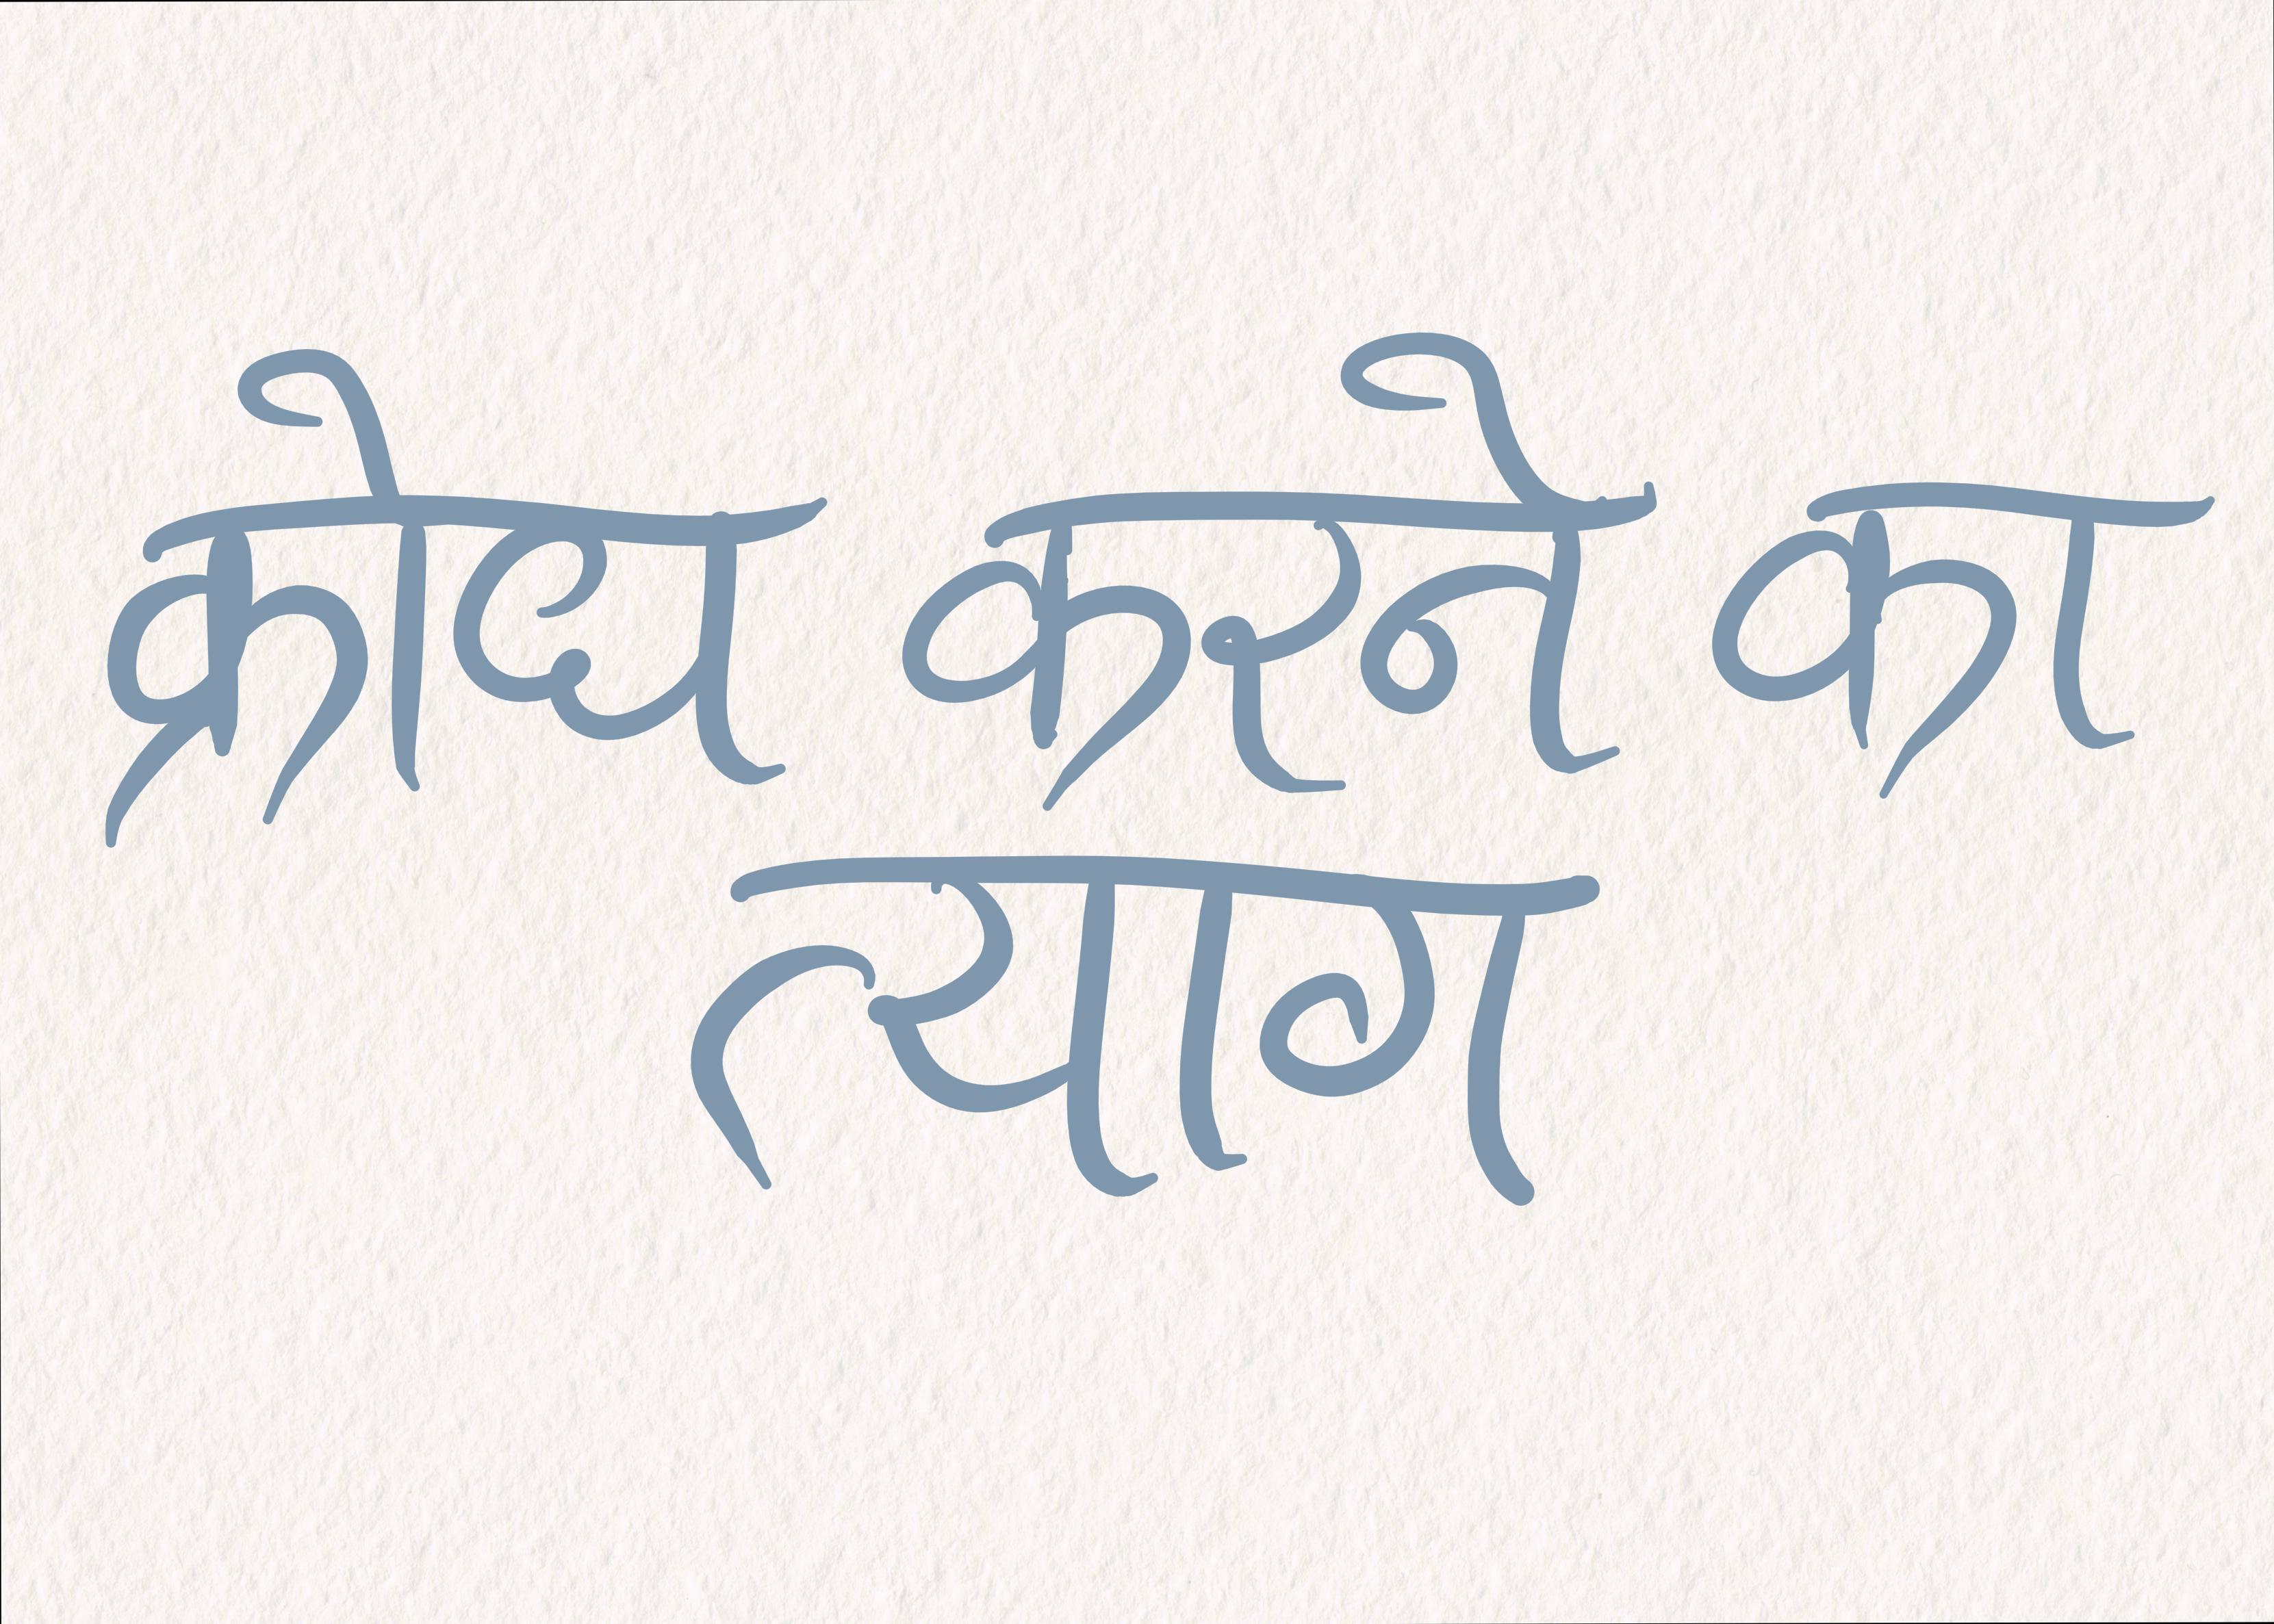 क्रोध करने का
त्याग